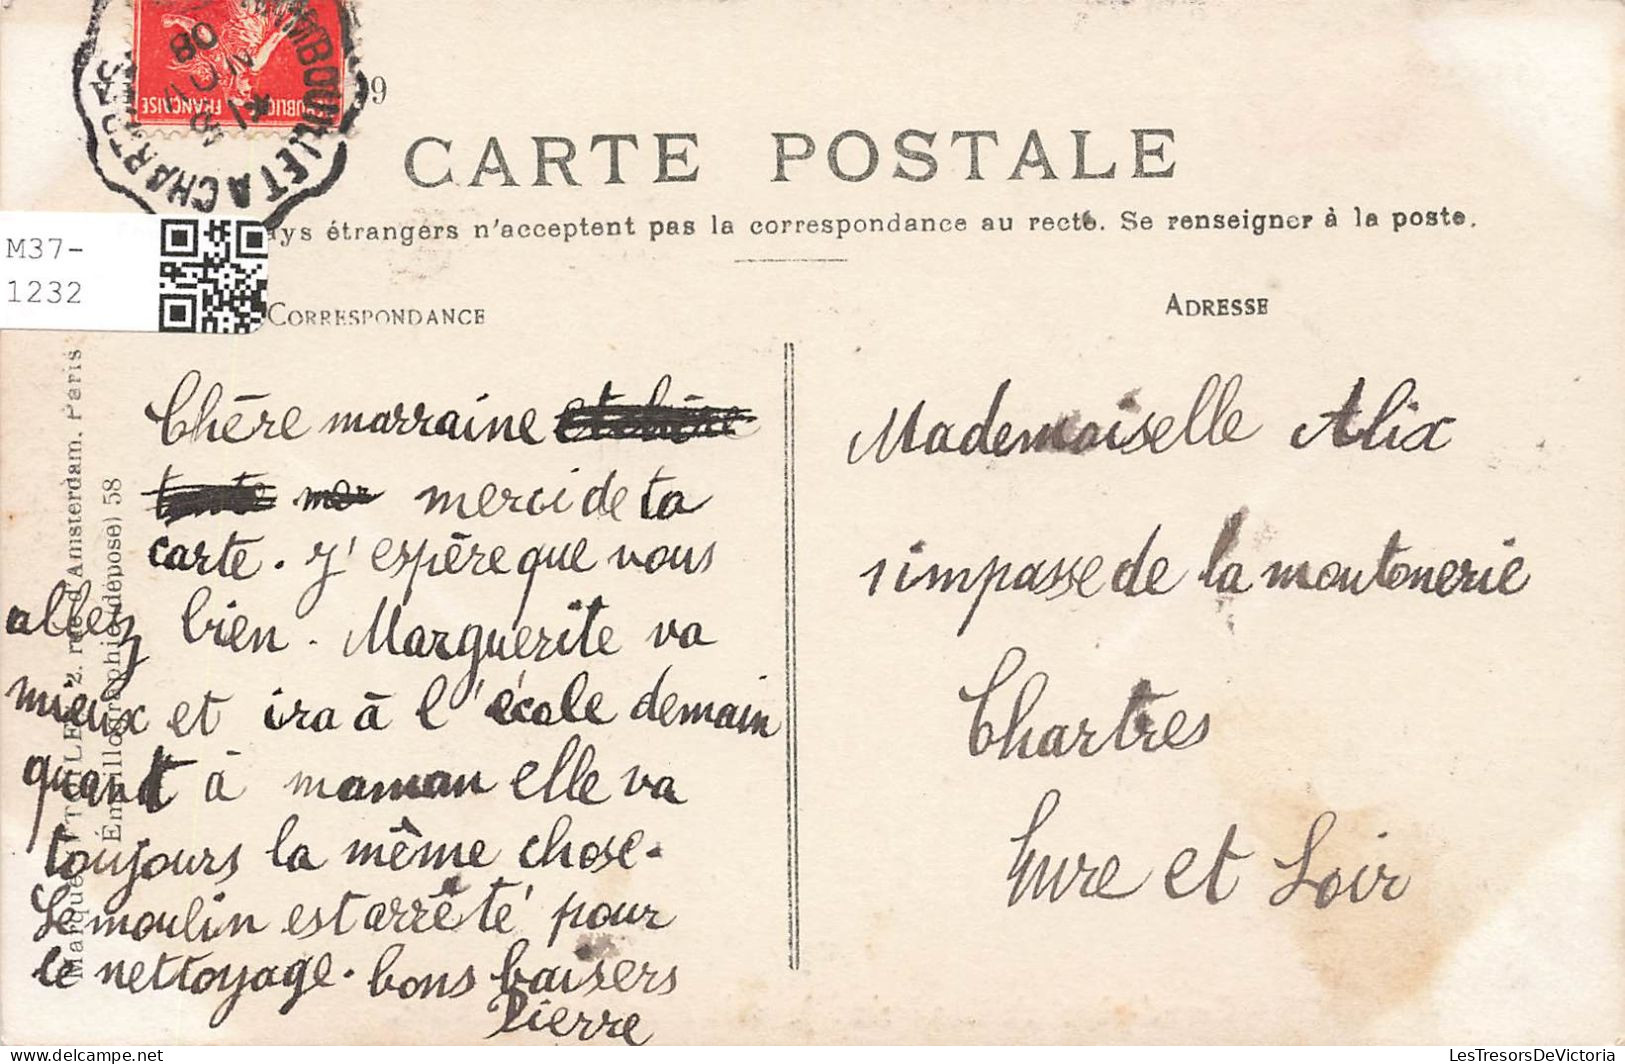 RÉPUBLIQUE FRANÇAISE
RAMBOUILLET A CHARTRES
08
9
CARTE POSTALE
ays étrangers n'acceptent pas la correspondance au recto. Se renseigner à la poste.
M37-
1232
CORRESPONDANCE
Chère marraine et chère
tante mer merci de ta
carte. J'espère que vous
allez bien. Marguerite va
mieux et ira à l'école demain
quant à maman elle va
toujours la même chose.
Le moulin est arrêté pour
le nettoyage. bons baisers
Pierre
ADRESSE
Mademoiselle Alix
1 impasse de la moutonerie
Chartres
Eure et Loir
Marque ÉTOILE, 2, rue d'Amsterdam. Paris
Émaillographie (déposé) 58
LesTresorsDeVictoria
delcampe.net